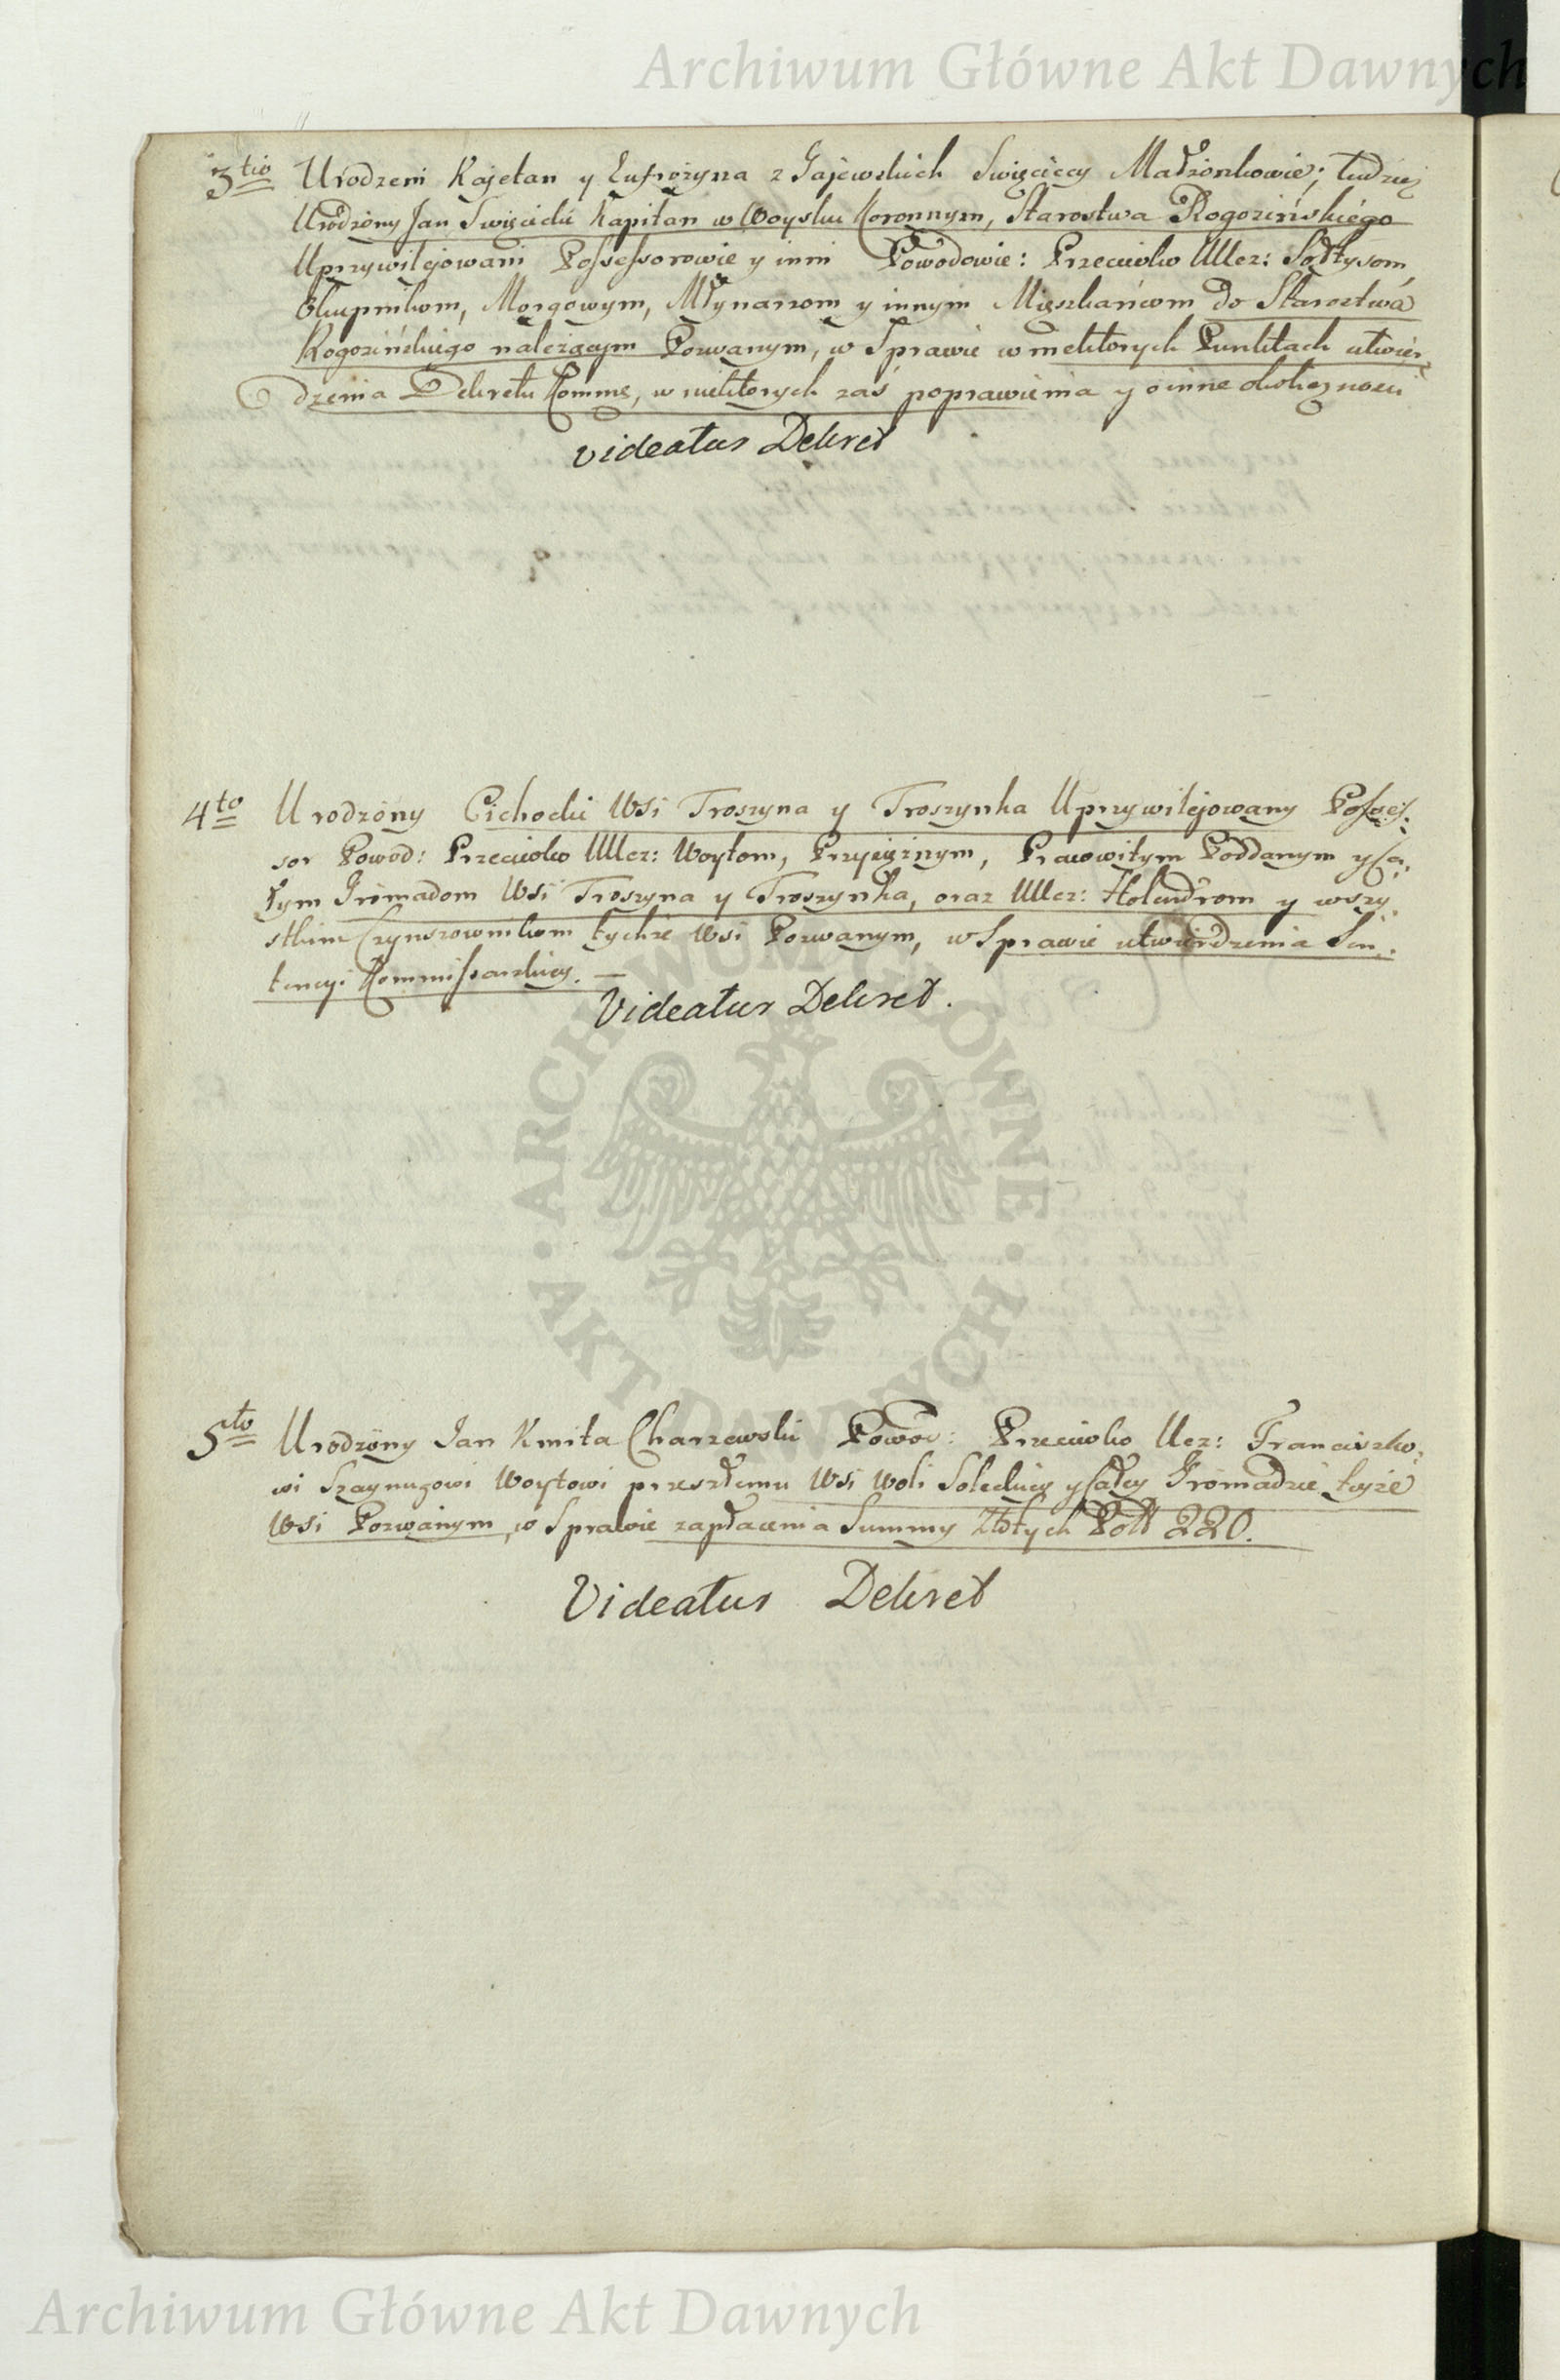 Archiwum Główne Akt Dawnych
3tio Urodzeni Kajetan y Eufrozyna z Gajewskich Swięciccy Małżonkowie; tudziesz
Urodzony Jan Swięcicki Kapitan w Woysku Koronnym, Starostwa Rogozińskiego
Uprzywilejowani Possessorowie y inni Powodowie: Przeciwko UUcz: Sołtysom,
Okupnikom, Morgowym, Młynarzom y innym Mięszkańcom do Starostwa
Rogozińskiego należącym Pozwanym, w Sprawie w niektorych Punktach utwier,
dzenia Dekretu Kommis, w niektorych zaś poprawienia y o inne okolicznosci
Videatur Dekret
4to Urodzony Cichocki Wsi Troszyna y Troszynka Uprzywilejowany Posses,
sor Powod: Przeciwko UUcz: Woytom, Przysiężnym, Pracowitym Poddanym y Ca,
łym Gromadom Wsi Troszyna y Troszynka, oraz UUcz: Holendrom y wszy,
stkim Czynszownikom tychże Wsi Pozwanym, w Sprawie utwierdzenia Sen,
tencyi Kommissarskiey. —
Videatur Dekret.
5to Urodzony Jan Kmita Charzewski Powod: Przeciwko Ucz: Franciszko,
wi Szaynugowi Woytowi przeszłemu Wsi Woli Soleckiey y Całey Gromadzie teyże
Wsi Pozwanym, w Sprawie zapłacenia Summy Złłtych Poll 220.
Videatur Dekret
ARCHIWUM GŁÓWNE · AKT DAWNYCH ·
Archiwum Główne Akt Dawnych